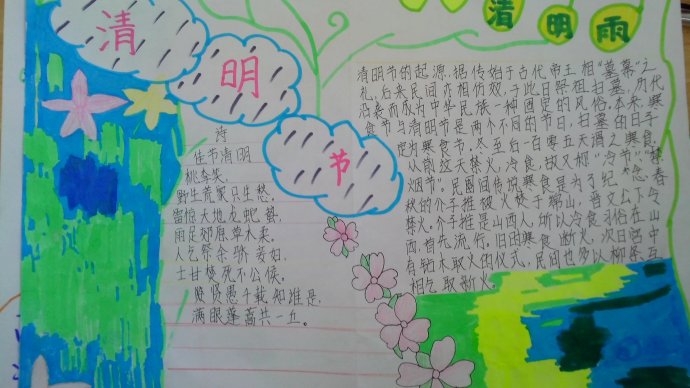 清明节
清明雨
诗
佳节清明
桃李笑,
野生荒冢只生愁,
雷惊天地龙蛇蛰,
雨足郊原草木柔。
人乞祭余骄妾妇,
士甘焚死不公候。
贤愚千载知谁是,
满眼蓬蒿共一丘。
清明节的起源,据传始于古代帝王相"墓幕"之
礼,后来民间亦相仿效,于此日祭祖扫墓,历代
沿袭而成为中华民族一种固定的风俗。本来,寒
食节与清明节是两个不同的节日,扫墓的日子
定为寒食节。冬至后一百零五天谓之寒食,
从前这天禁火,冷食,故又称"冷节""禁
烟节"。民间传说寒食是为了纪念春
秋的介子推被火焚于绵山,晋文公下令
禁火。介子推是山西人,所以冷食习俗在山
西首先流行,旧因寒食断火,次日宫中
有钻木取火的仪式,民间也多以柳条互
相乞取新火。